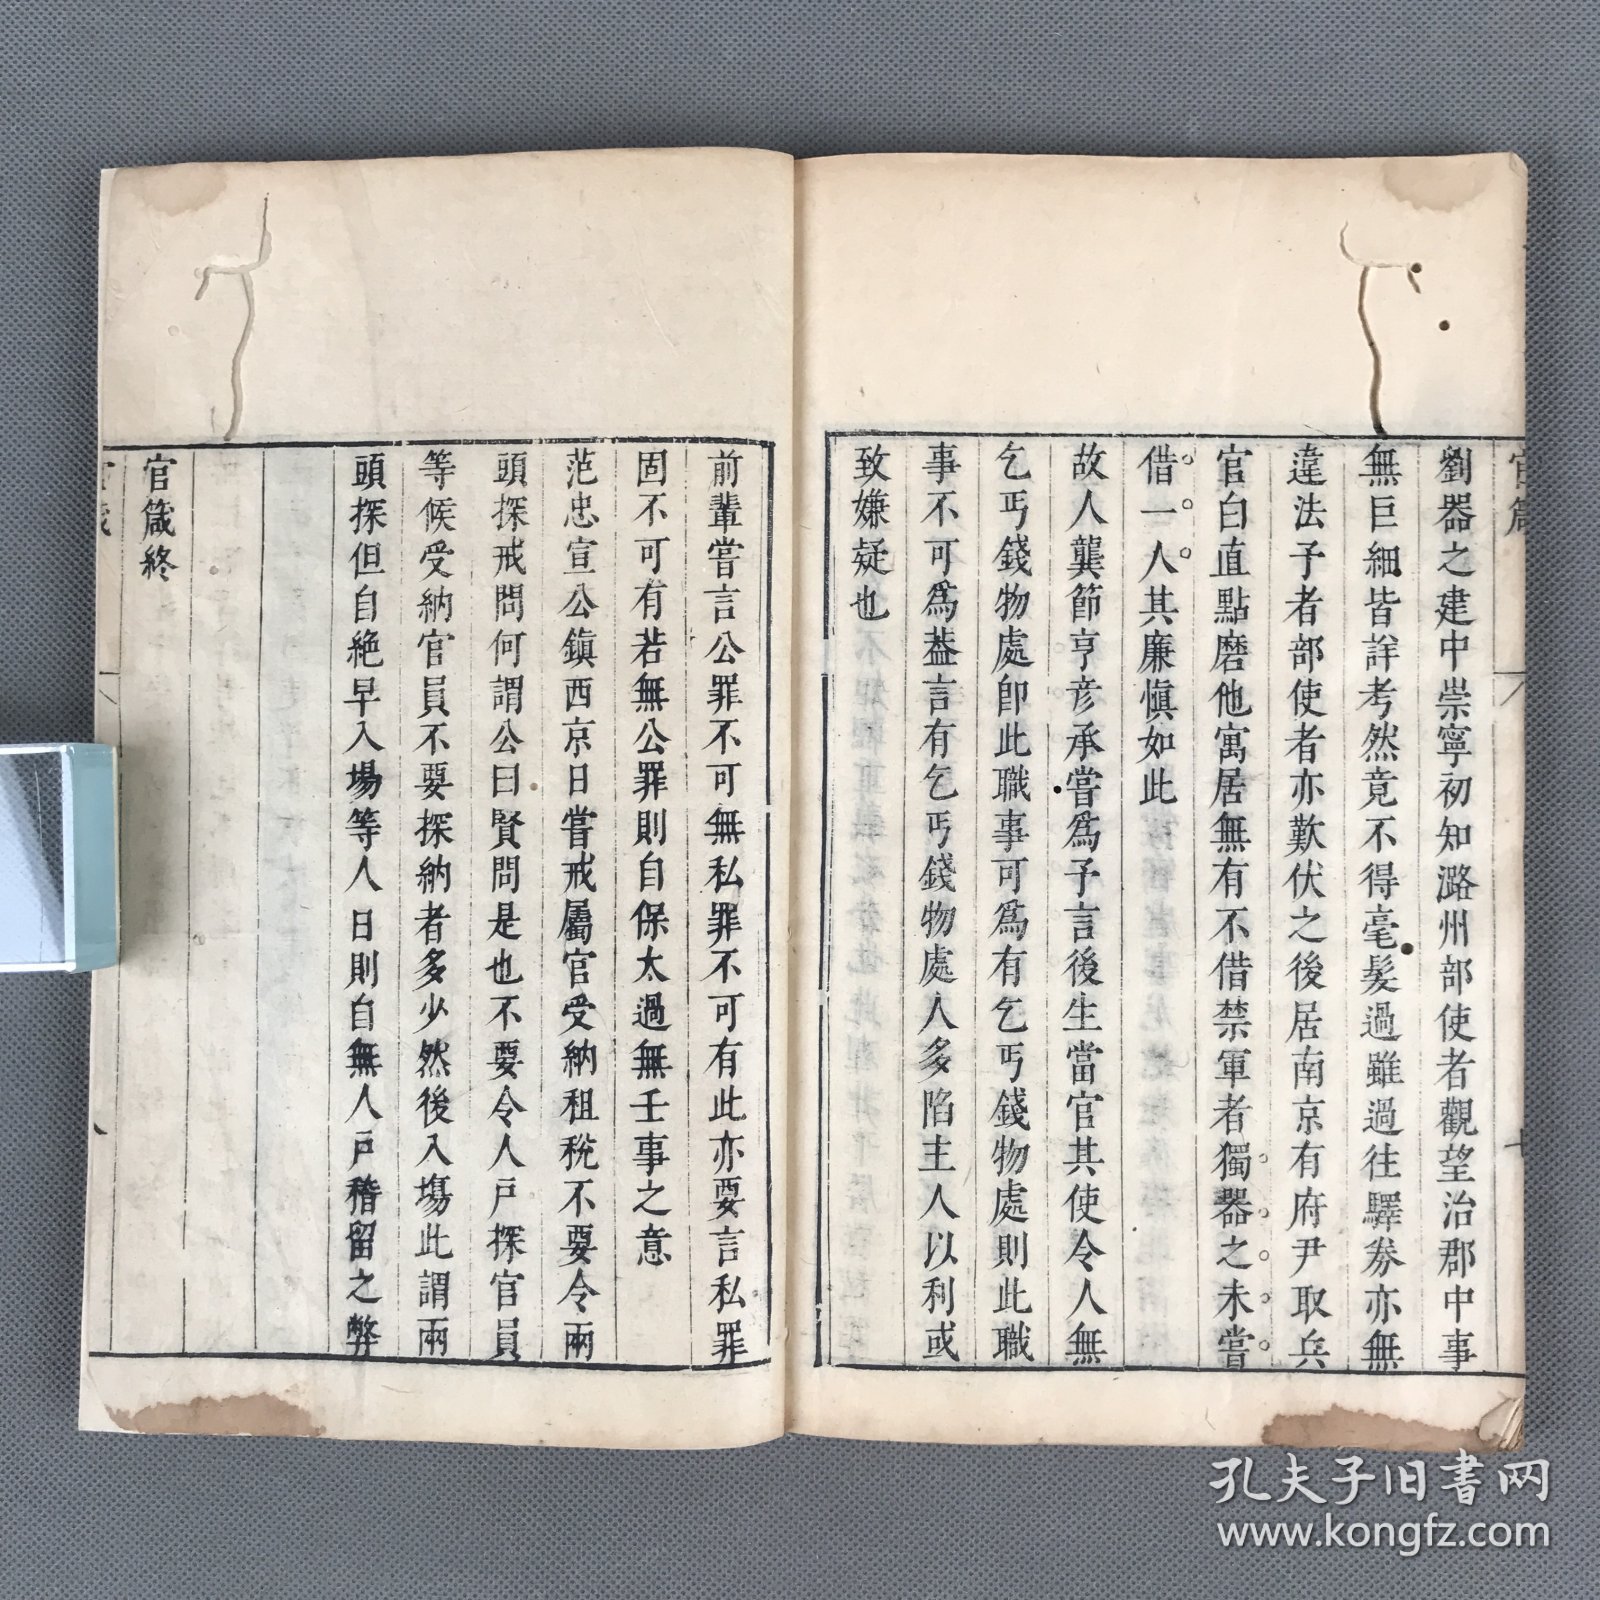 劉器之建中崇寧初知潞州部使者觀望治郡中事
無巨細皆詳考然竟不得毫髮過雖過往驛券亦無
違法予者部使者亦歎伏之後居南京有府尹取兵
官白直點磨他寓居無有不借禁軍者獨器之未嘗
借一人其廉慎如此
故人龔節亨彦承嘗爲予言後生當官其使令人無
乞丐錢物處卽此職事可爲有乞丐錢物處則此職
事不可爲葢言有乞丐錢物處人多陷主人以利或
致嫌疑也
前輩嘗言公罪不可無私罪不可有此亦要言私罪
固不可有若無公罪則自保太過無壬事之意
范忠宣公鎮西京日嘗戒屬官受納租稅不要令兩
頭探戒問何謂公曰賢問是也不要令人戸探官員
等候受納官員不要探納者多少然後入塲此謂兩
頭探但自絶早入塲等人日則自無人戸稽留之弊
官箴終
官箴
孔夫子旧书网
www.kongfz.com